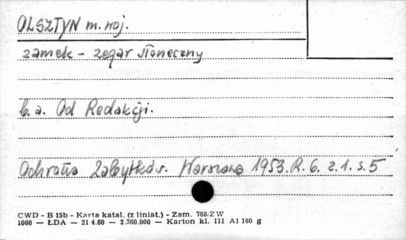 OLSZTYN m. woj.
zamek - zegar słoneczny
b. a. Od Redakcji.
Ochrona Zabytków. Warszawa 1953. R. 6. z. 1. s. 5
CWD - B 15b - Karta katal. (z liniat.) - Zam. 788/Z W
1060 — ŁDA — 21 4.60 — 2.760.000 — Karton kl. III A1 160 g